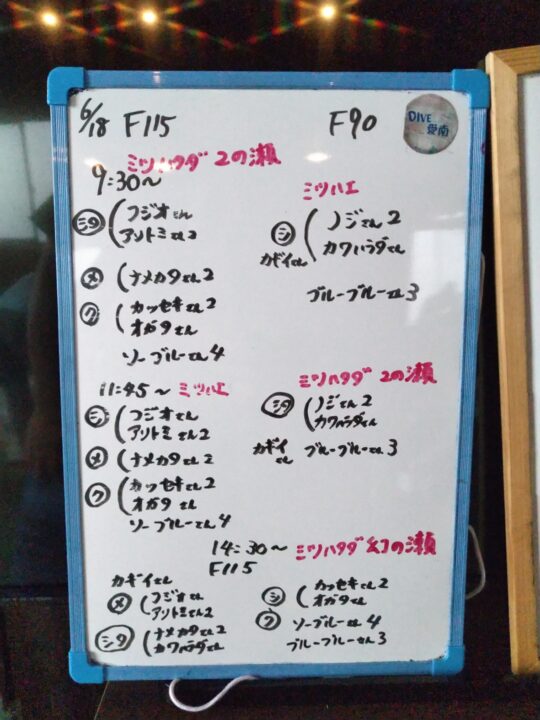 6/18 F115
F90
DIVE
愛南
ミツハタダ 2の瀬
9:30〜
シタ フジオさん
アソトミさん2
メ ナメカタさん2
ク カッセキさん2
オガタさん
ソーブルーさん4
ミツハエ
シ ノジさん2
カワハラダさん
カギイさん
ブルーブルーさん3
11:45〜 ミツハエ
シ フジオさん
アソトミさん2
メ ナメカタさん2
ク カッセキさん2
オガタさん
ソーブルーさん4
ミツハタダ 2の瀬
シタ ノジさん2
カワハラダさん
カギイさん ブルーブルーさん3
14:30〜 ミツハタダ 幻の瀬
F115
カギイさん
メ フジオさん
アソトミさん2
シタ ナメカタさん2
カワハラダさん
シ カッセキさん2
オガタさん
ク ソーブルーさん4
ブルーブルーさん3